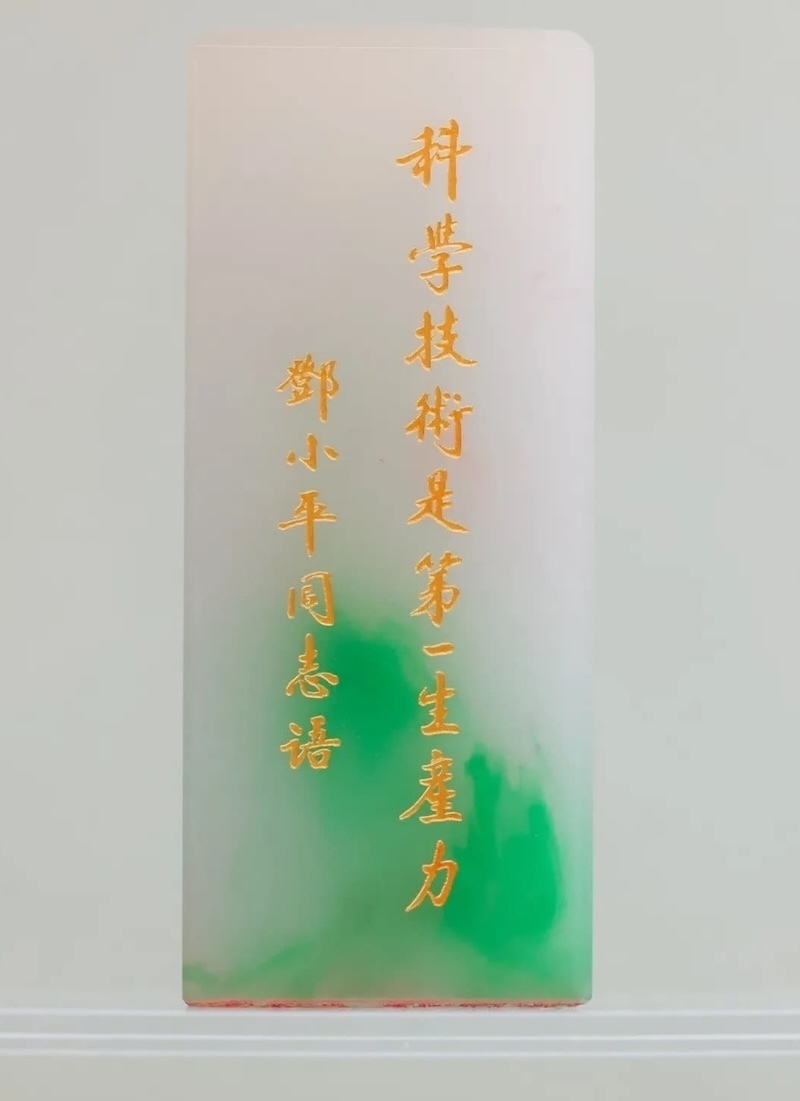 科學技術是第一生産力
鄧小平同志语